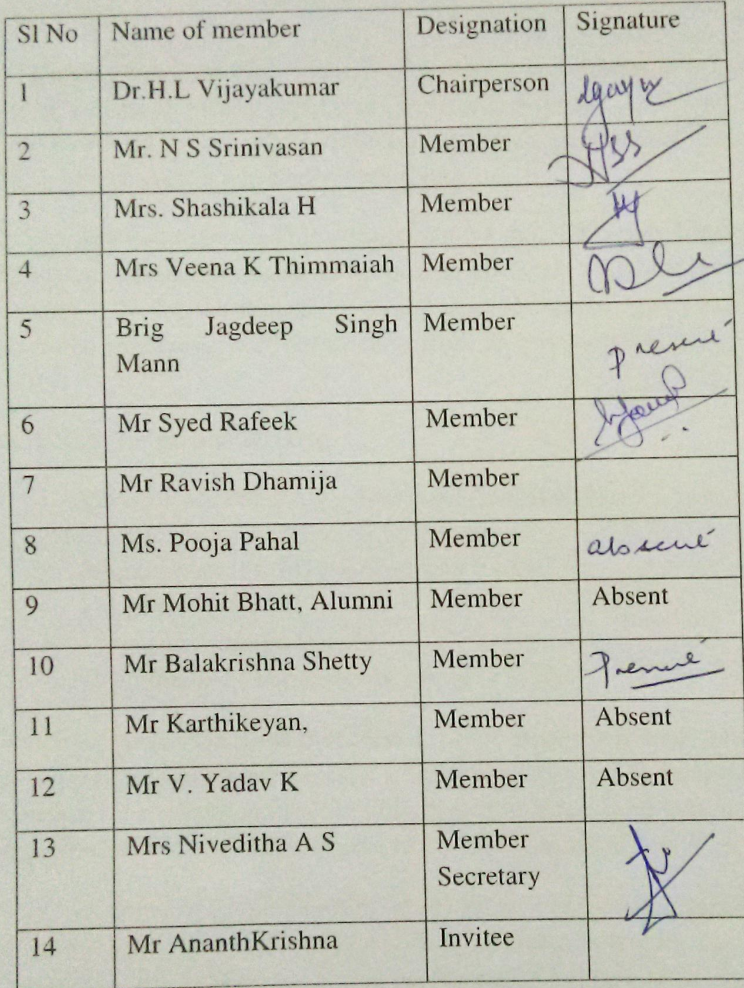 Sl No Name of member Designation Signature
1 Dr.H.L Vijayakumar Chairperson
2 Mr. N S Srinivasan Member
3 Mrs. Shashikala H Member
4 Mrs Veena K Thimmaiah Member
5 Brig Jagdeep Singh Member
Mann present
6 Mr Syed Rafeek Member
7 Mr Ravish Dhamija Member
8 Ms. Pooja Pahal Member absent
9 Mr Mohit Bhatt, Alumni Member Absent
10 Mr Balakrishna Shetty Member Present
11 Mr Karthikeyan, Member Absent
12 Mr V. Yadav K Member Absent
13 Mrs Niveditha A S Member
Secretary
14 Mr AnanthKrishna Invitee